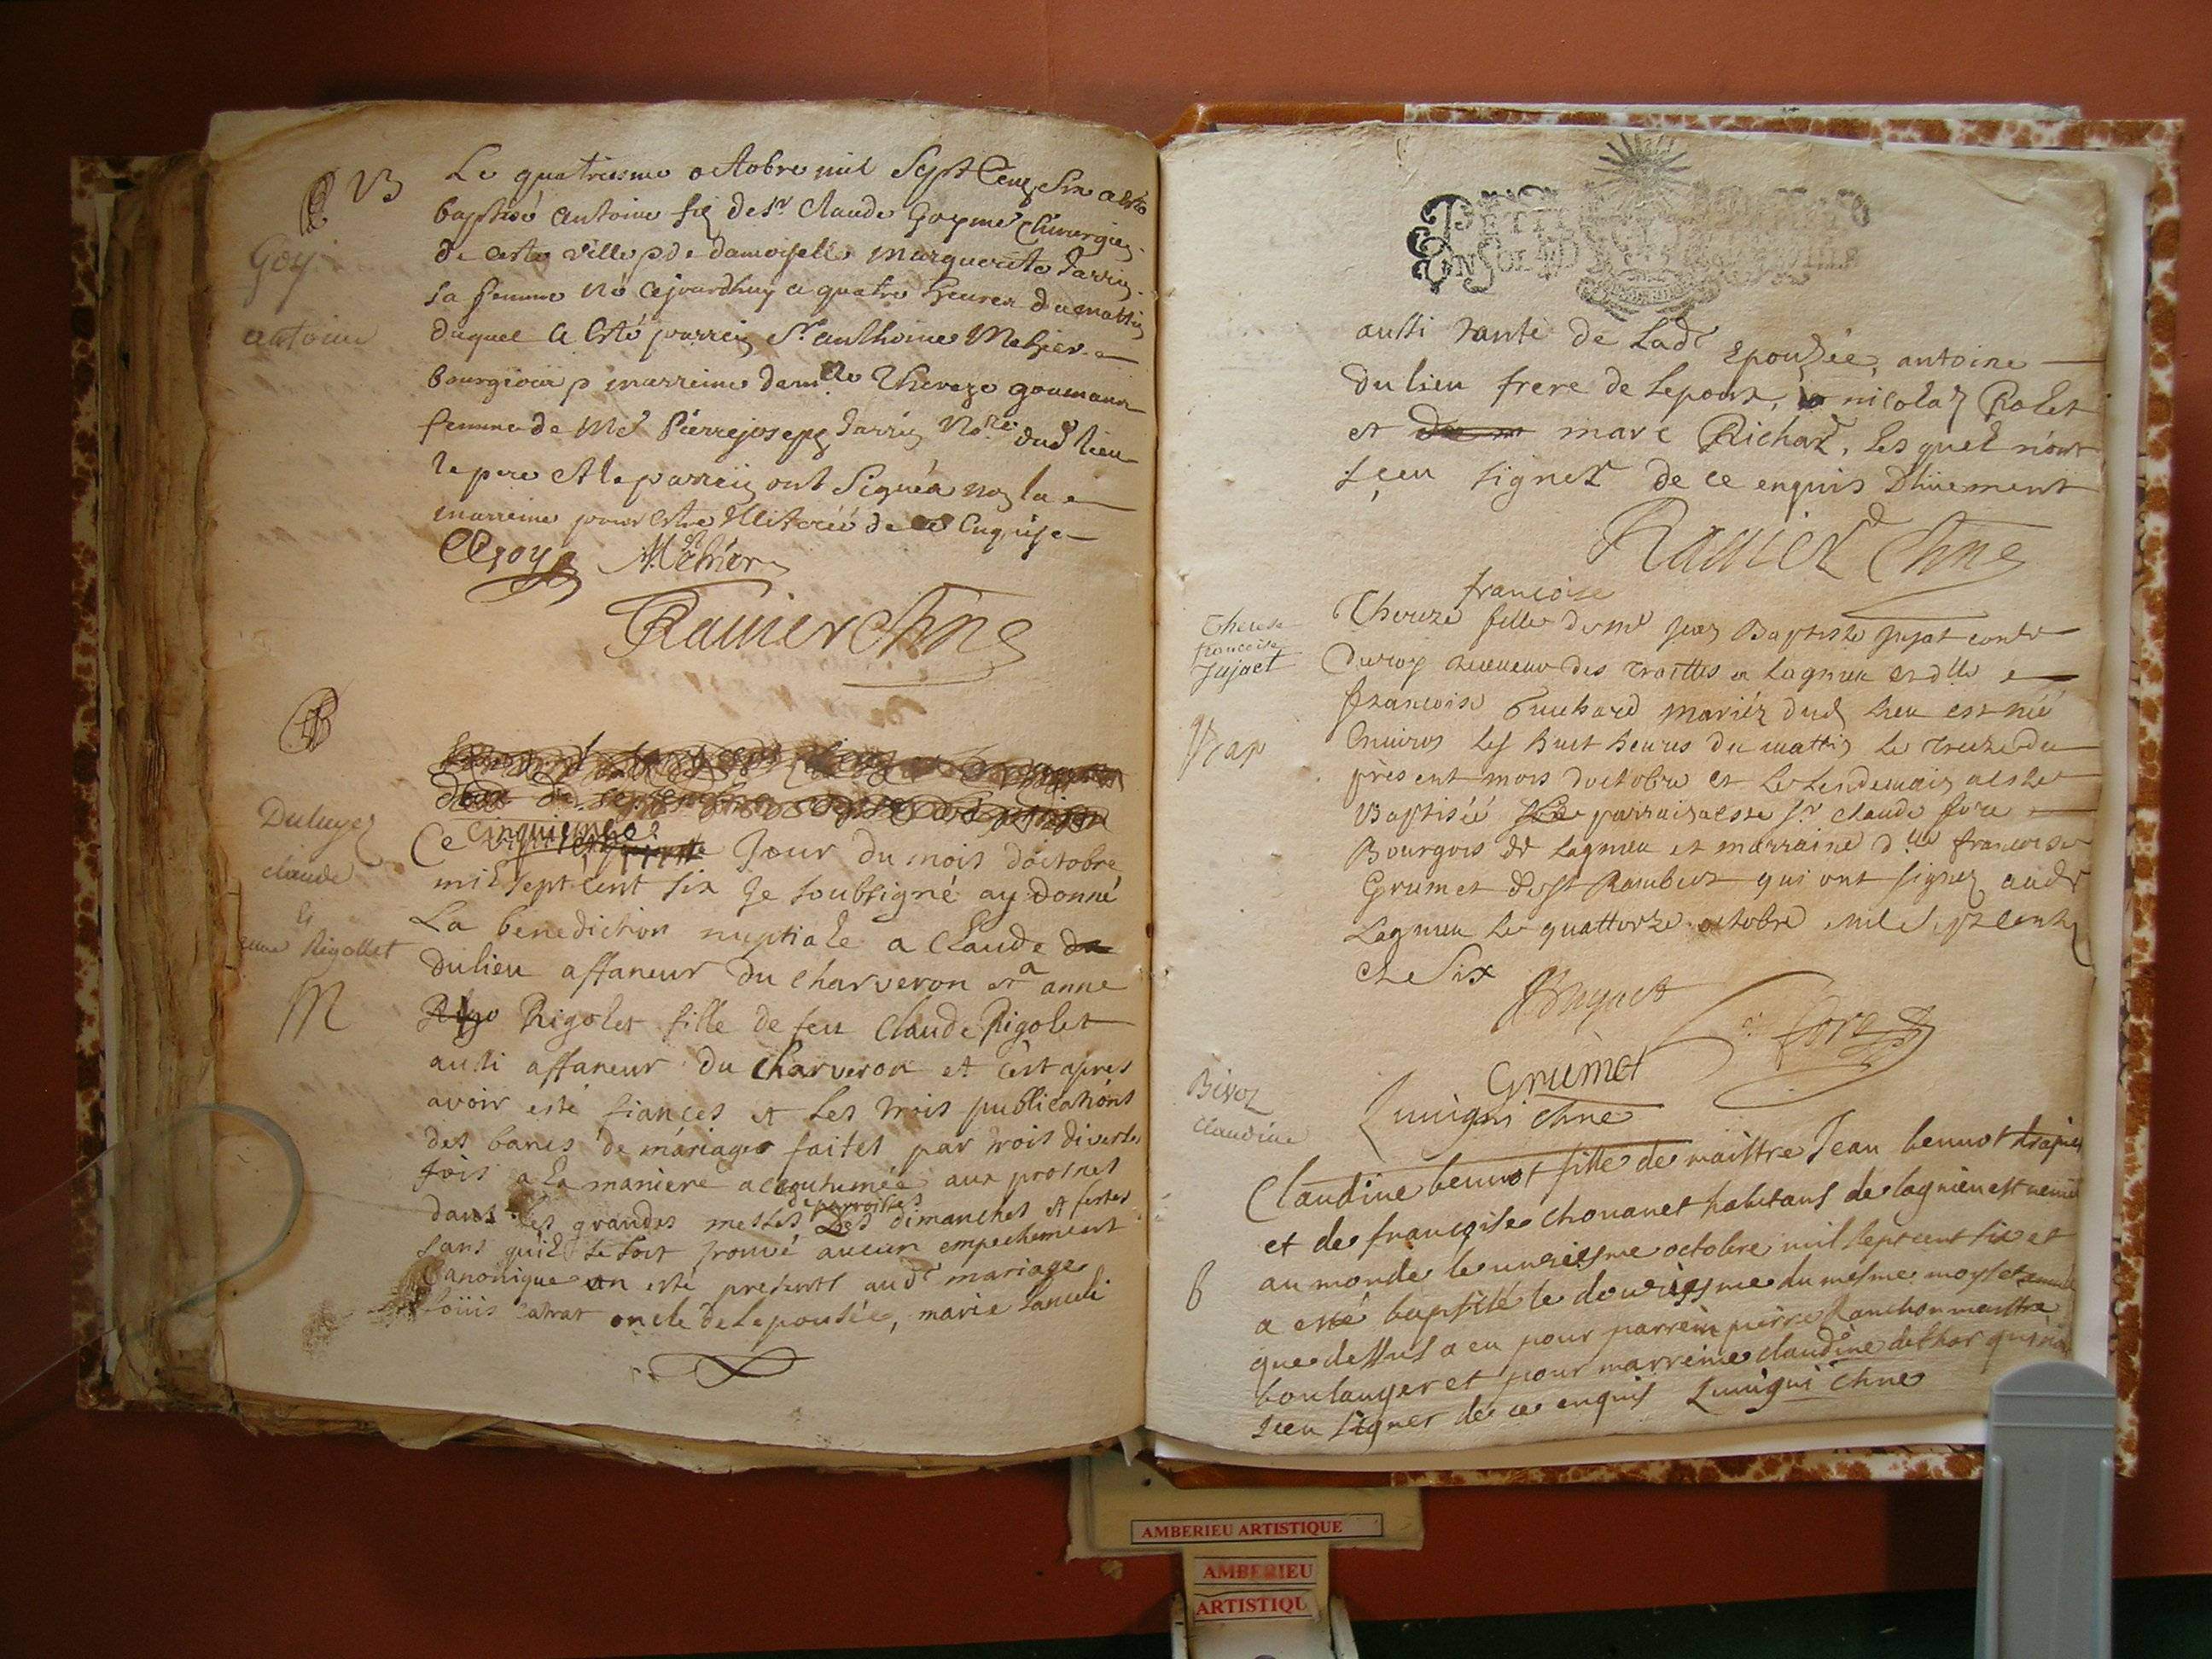 B
Goy
antoine
Le quatriesme octobre mil sept Cens six a esté
baptisé antoine fils de sr Claude Goy me Chirurgien
de ceste ville et de damoiselle marguerite Jarrin
sa femme né ce jourdhuy a quatre heures du mattin
duquel a esté parrein Sr anthoine Methier
bourgeois et marreine damlle Thereze goumana
femme de Me Pierre joseph Jarrin Nore dud lieu
le pere et le parrein ont signéz non la
marreine pour estre Illiterée de ce Enquise
CGoy Methier
Ranier Chne
B
claude
et
anne Rigollet
M
Ce cinquiesme Jour du mois doctobre
mil sept cent six Je soubsigné ay donné
La benediction nuptiale a Claude
dulieu affaneur du Charveron et a anne
Rigolet fille de feu Claude Rigolet
aussi affaneur du Charveron et c'est apres
avoir esté fiances et les trois publications
des bancs de mariage faites par trois diverses
fois a la maniere accoutumée aux prosnes
de parroisses
dans les grandes messes des dimanches et festes
sans qu'il se soit trouvé aucun empechement
Canonique on esté presents aud mariage
Loüis catrat oncle de Lepousée, marie
PETIT
EN SOL AD
aussi tante de Lade Epousée, antoine
Dulieu frere de Lepoux, nicolas Rolet
et marc Richard, lesquels n'ont
sçeu signer de ce enquis Dhuement
Ranier Chne
Therese
francoise
Jujaet
Bap
francoise
Thereze fille de me Jean Baptiste Jujat contr
du roy receveur des traittes a Lagnieu et dlle
francoise Tuchard mariéz dud lieu est née
Environ les huit heures du mattin le treize du
present mois doctobre et le lendemain a este
Baptisée parrain a este sr Claude fore
Bourgois de Lagnieu et marraine dlle francoise
Grumet de st Rambert qui ont signez aud
Lagnieu le quattorze octobre mil sept cents
et six
Fore
Grumet
Luuigni chne
Claudine
B
Claudine bennot fille de maistre Jean bennot
et de françoise chouanet habitans de lagnieu est venue
au monde le unziesme octobre mil sept cent six et
a esté baptisé le douziesme du mesme moys et
que dessus a eu pour parrein pierre Ranchon maistre
boulanger et pour marreine claudine dethor qui n'a
sceu signer de ce enquis Luuigni chne
AMBERIEU ARTISTIQUE
AMBERIEU
ARTISTIQU